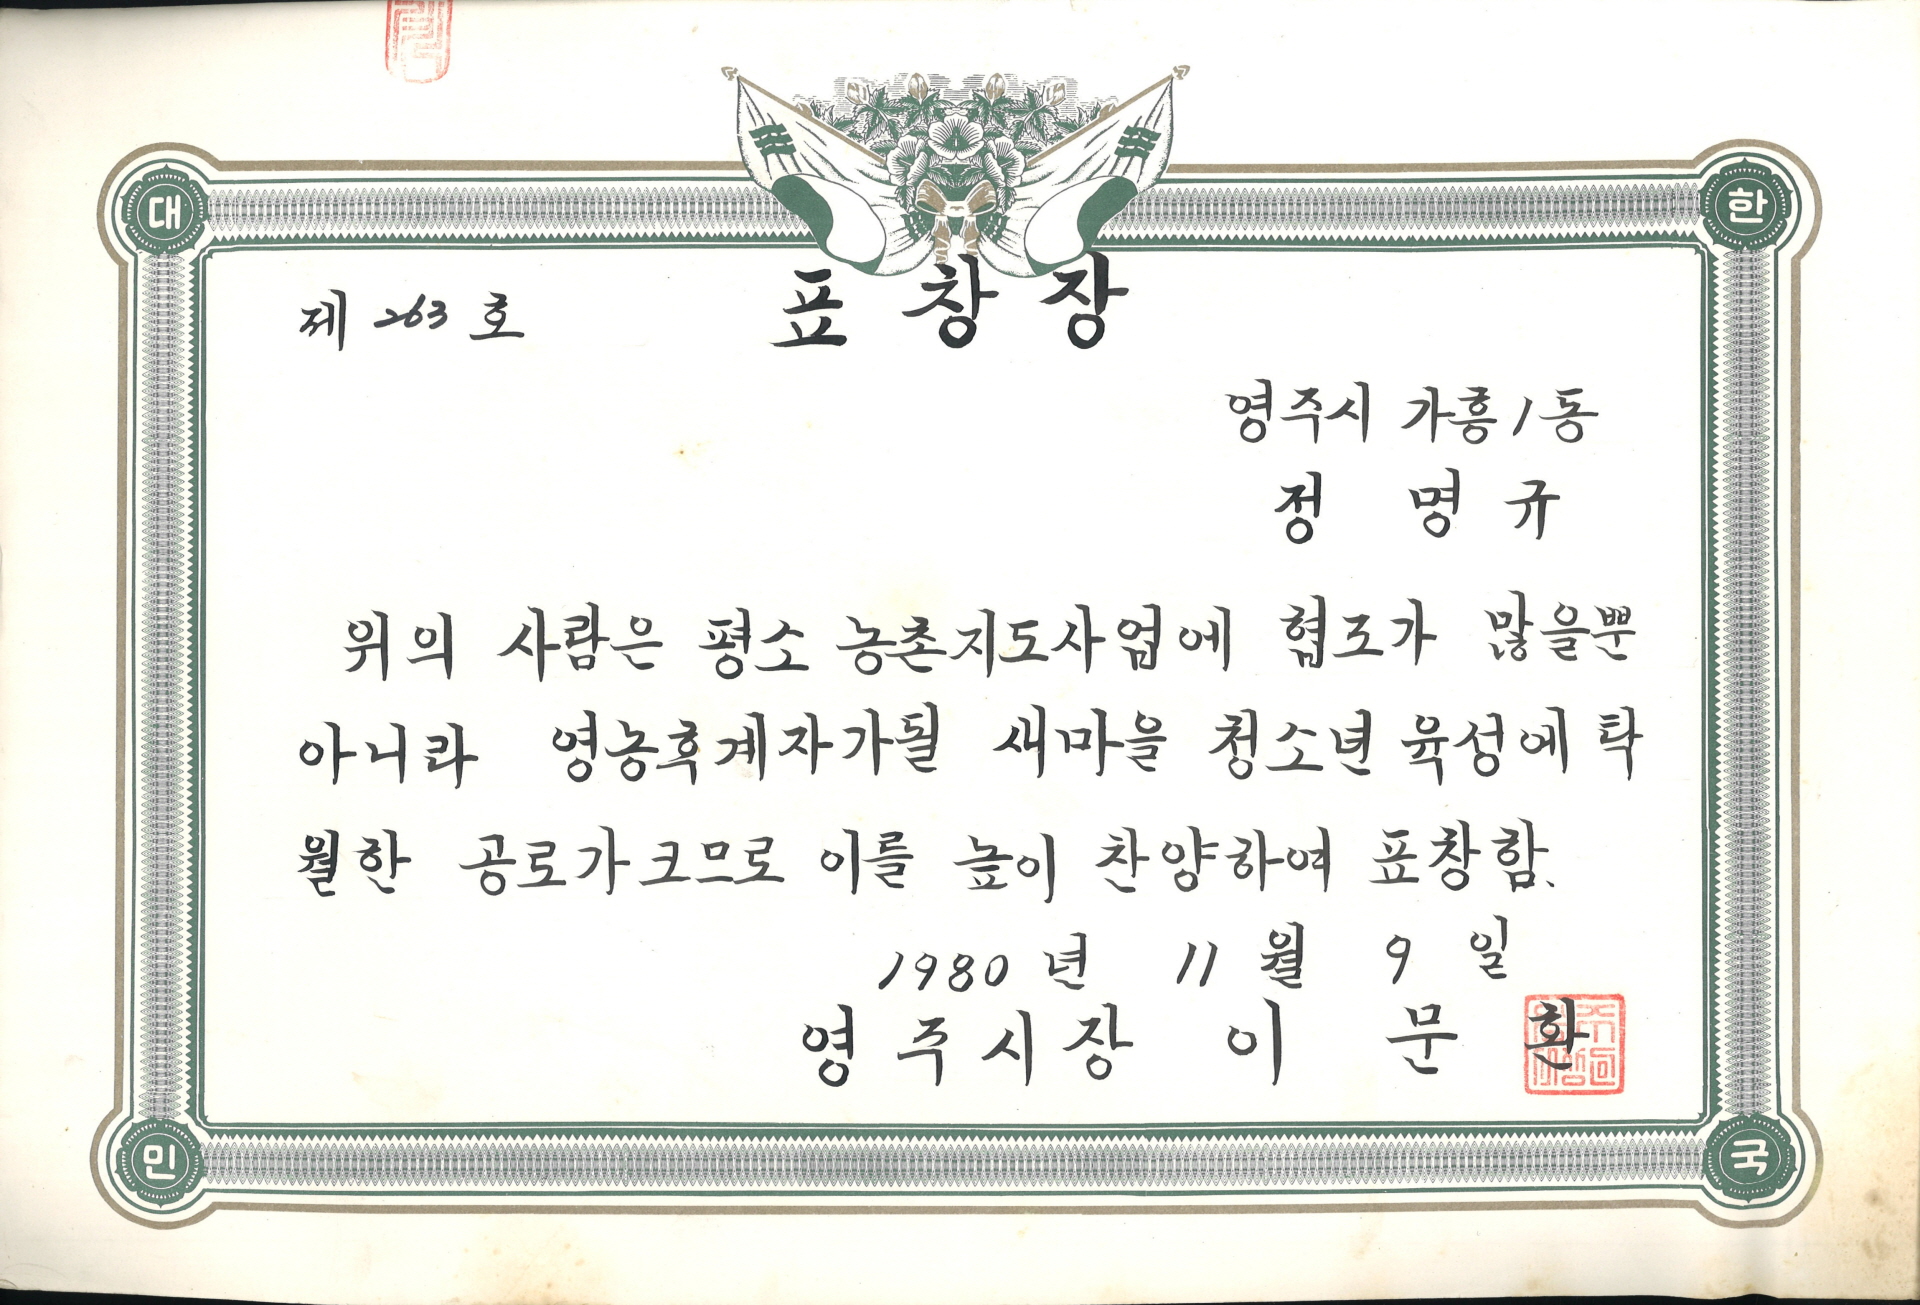 대 한
제 263 호 표 창 장
영주시 가흥1동
정 명 규
위의 사람은 평소 농촌지도사업에 협조가 많을뿐
아니라 영농후계자가될 새마을 청소년 육성에 탁
월한 공로가 크므로 이를 높이 찬양하여 표창함.
1980 년 11 월 9 일
영 주 시 장 이 문 환
민 국